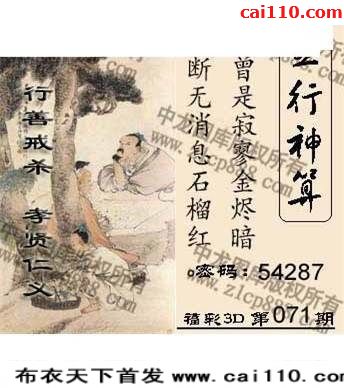 彩经网
cai110.com
五行神算
曾是寂寥金烬暗
断无消息石榴红
密码：54287
福彩3D 第071期
行善戒杀 孝贤仁义
中龙图库版权所有
www.z1cp888.com
布衣天下首发 www.cai110.com